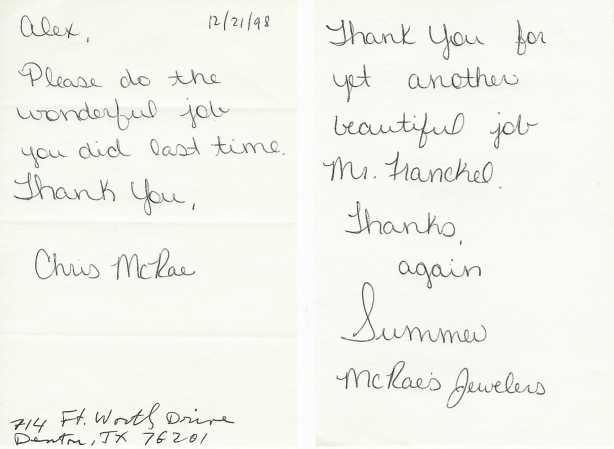 Alex,
12/21/98
Please do the
wonderful job
you did last time.
Thank You,
Chris McRae
714 Ft. Worth Drive
Denton, TX 76201
Thank You for
yet another
beautiful job
Mr. Franckel.
Thanks,
again
Summer
McRae's Jewelers